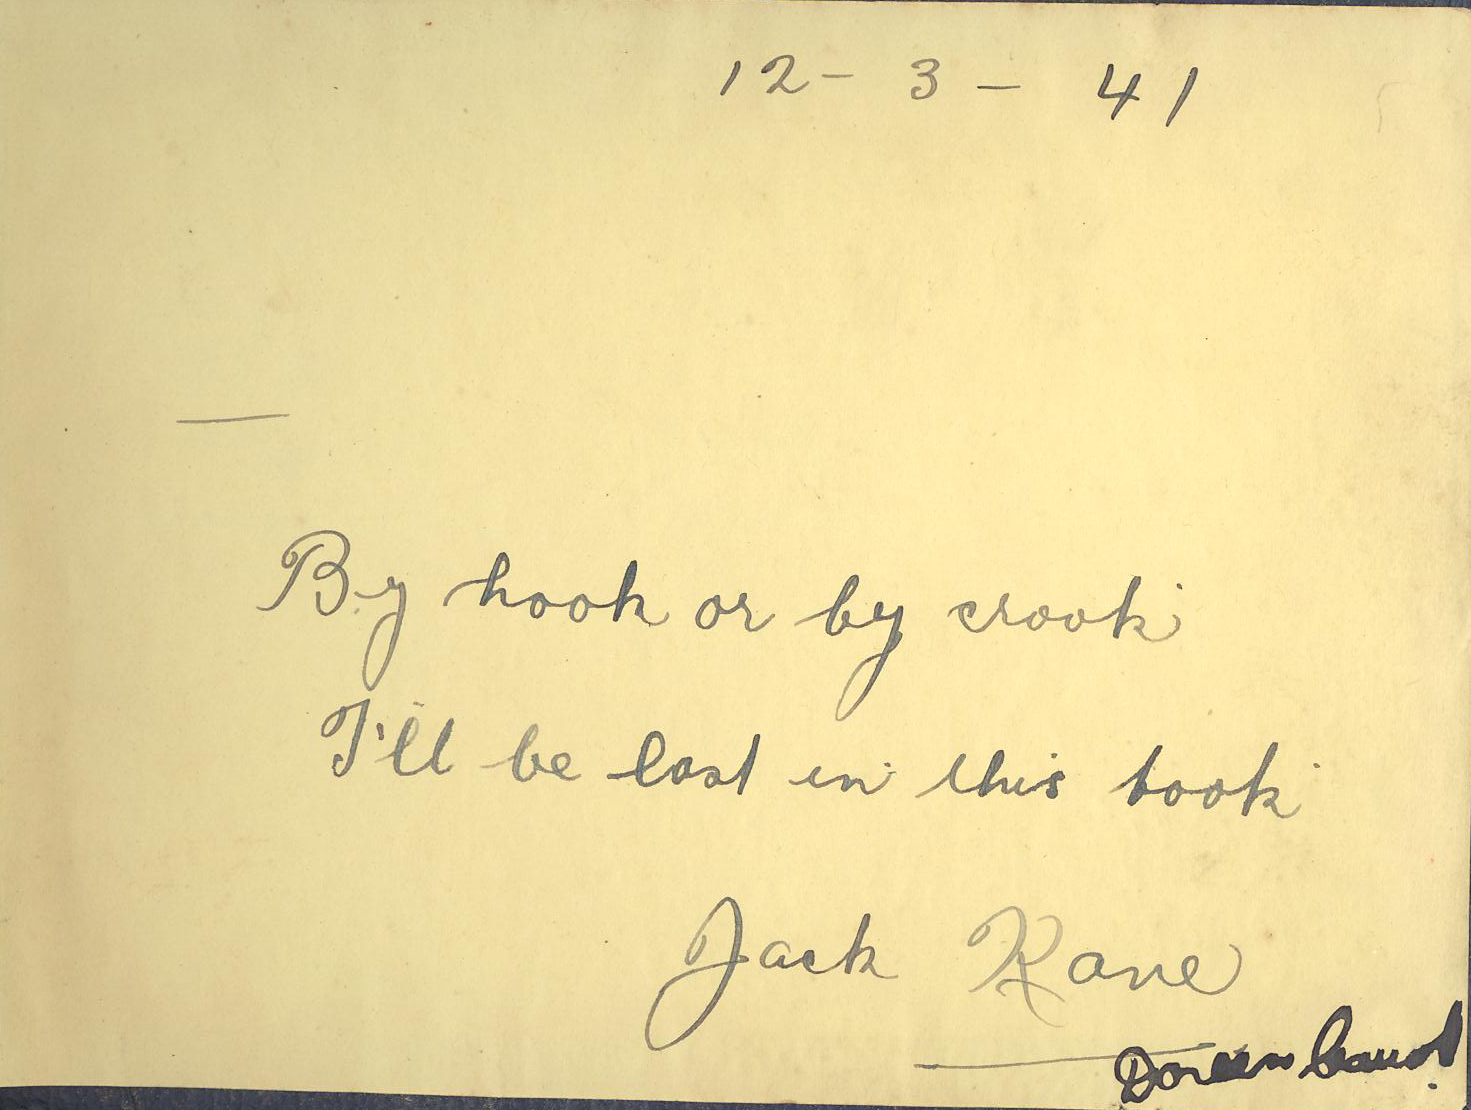 12 - 3 - 41
By hook or by crook
I'll be last in this book
Jack Kane
Doreen